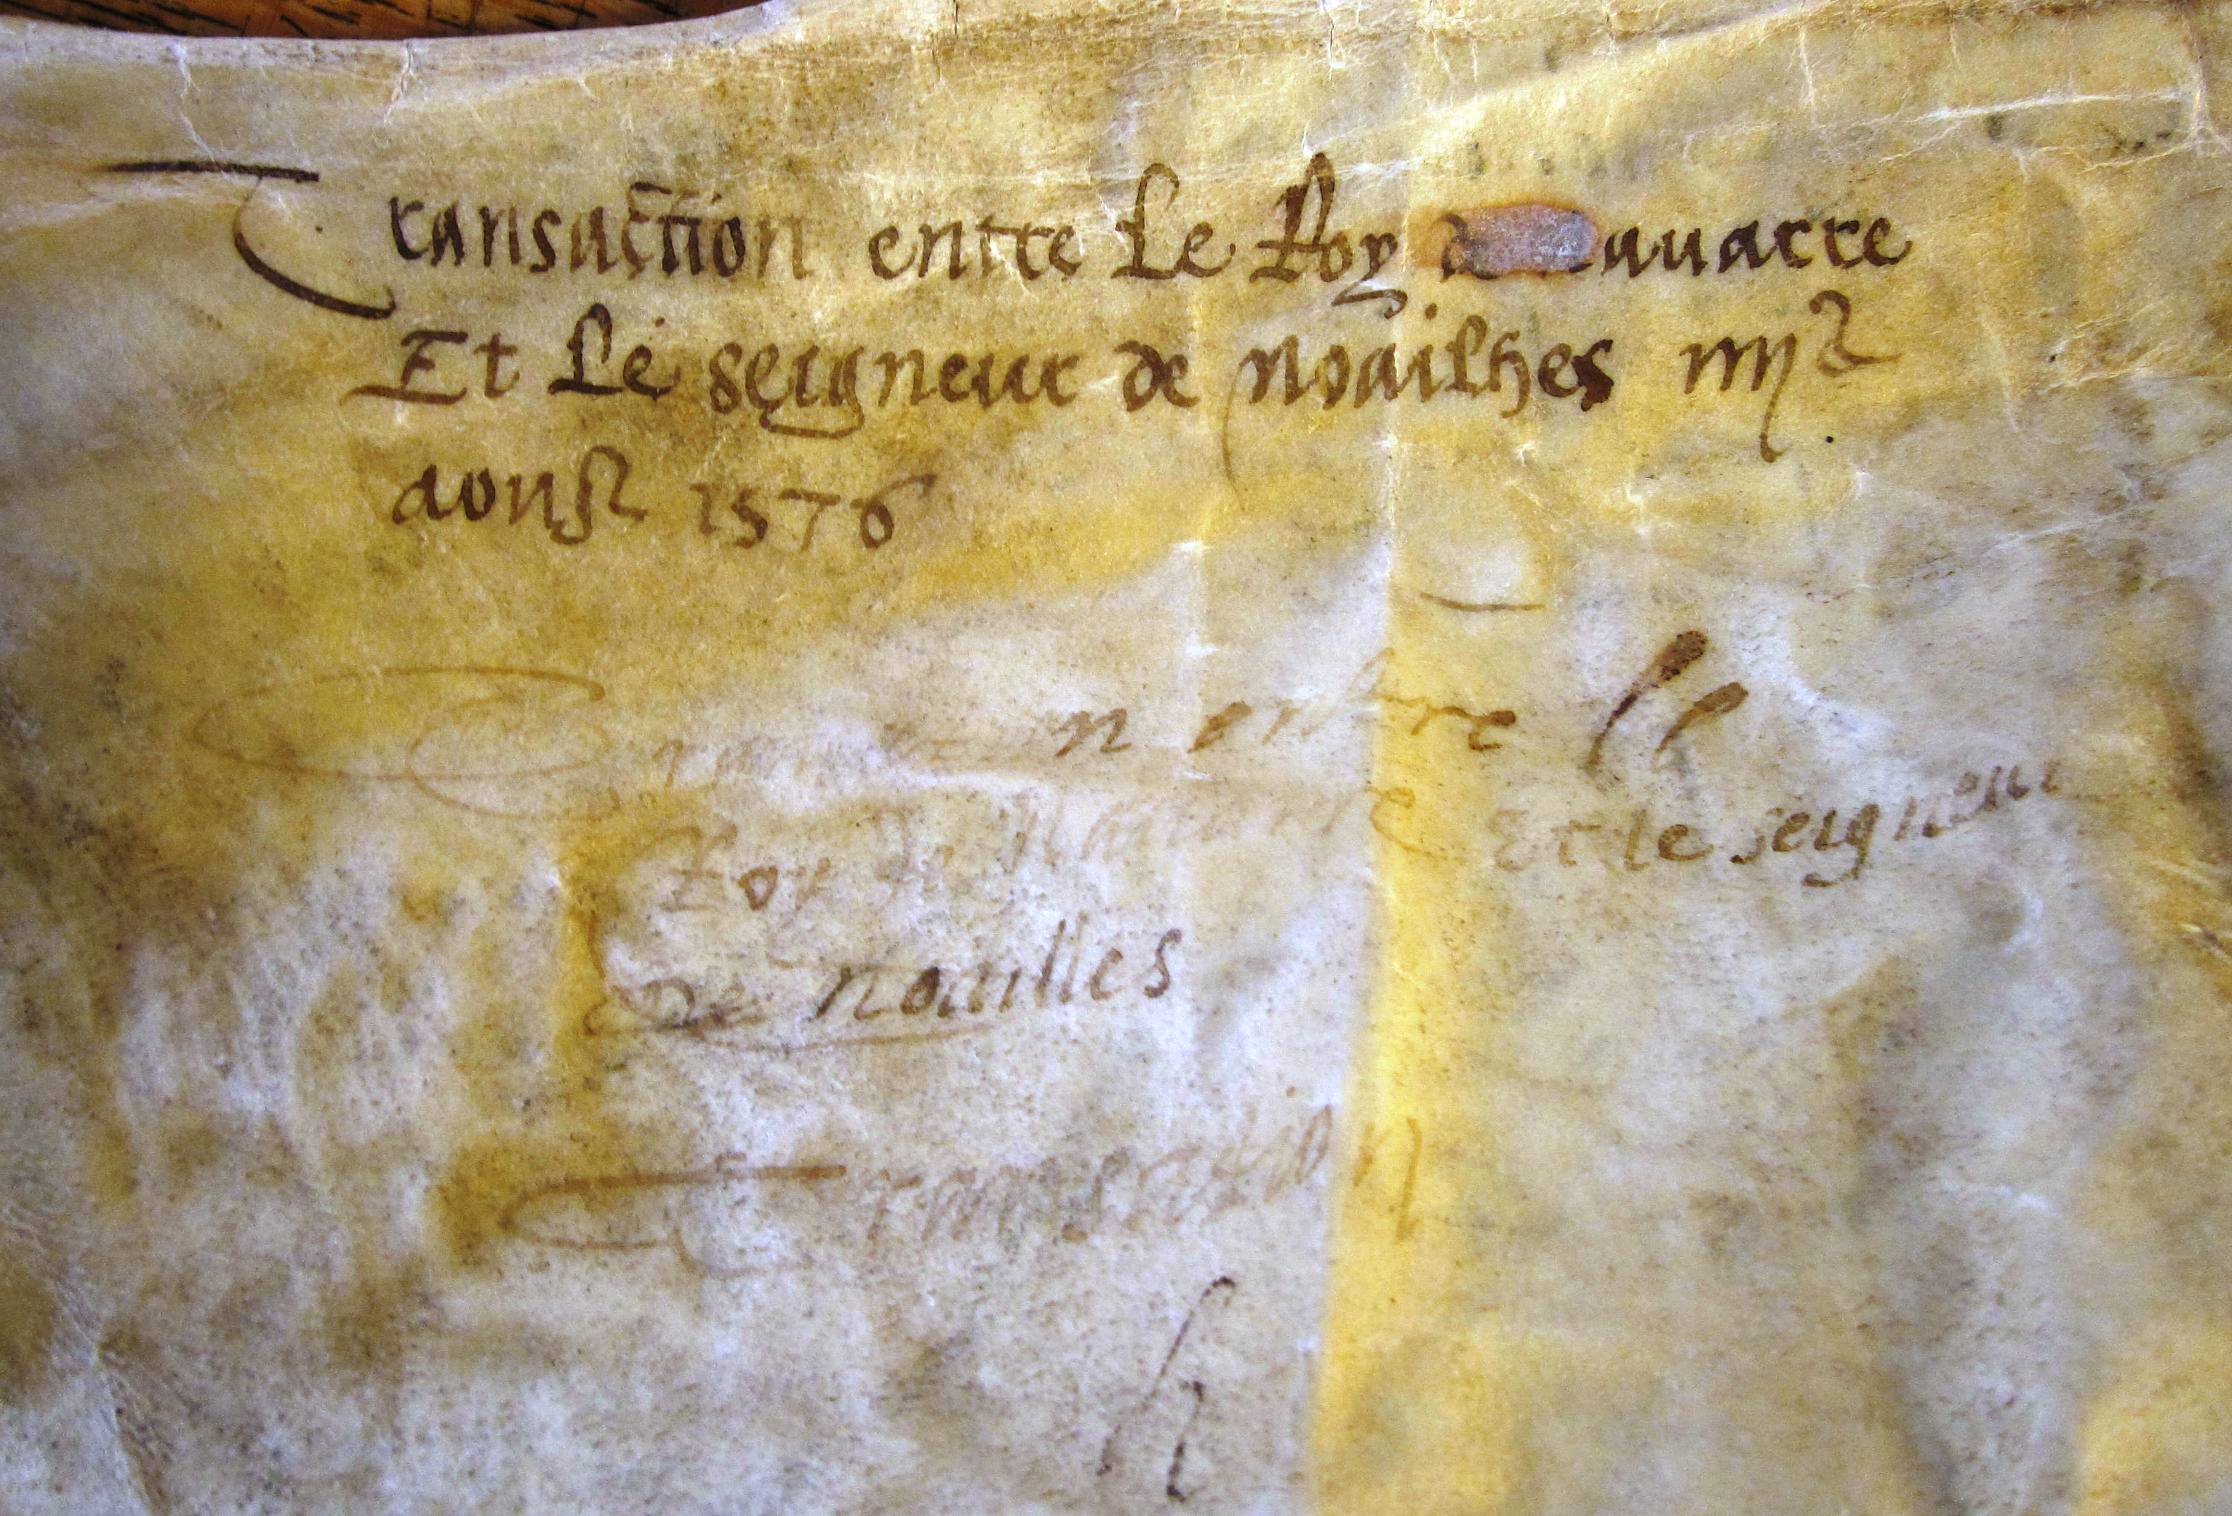 Transaction entre Le Roy de Navarre
Et Le seigneur de Noailhes iiij
aoust 1576
Transaction entre le
Roy de Navarre Et le seigneur
De noailles
Transaction